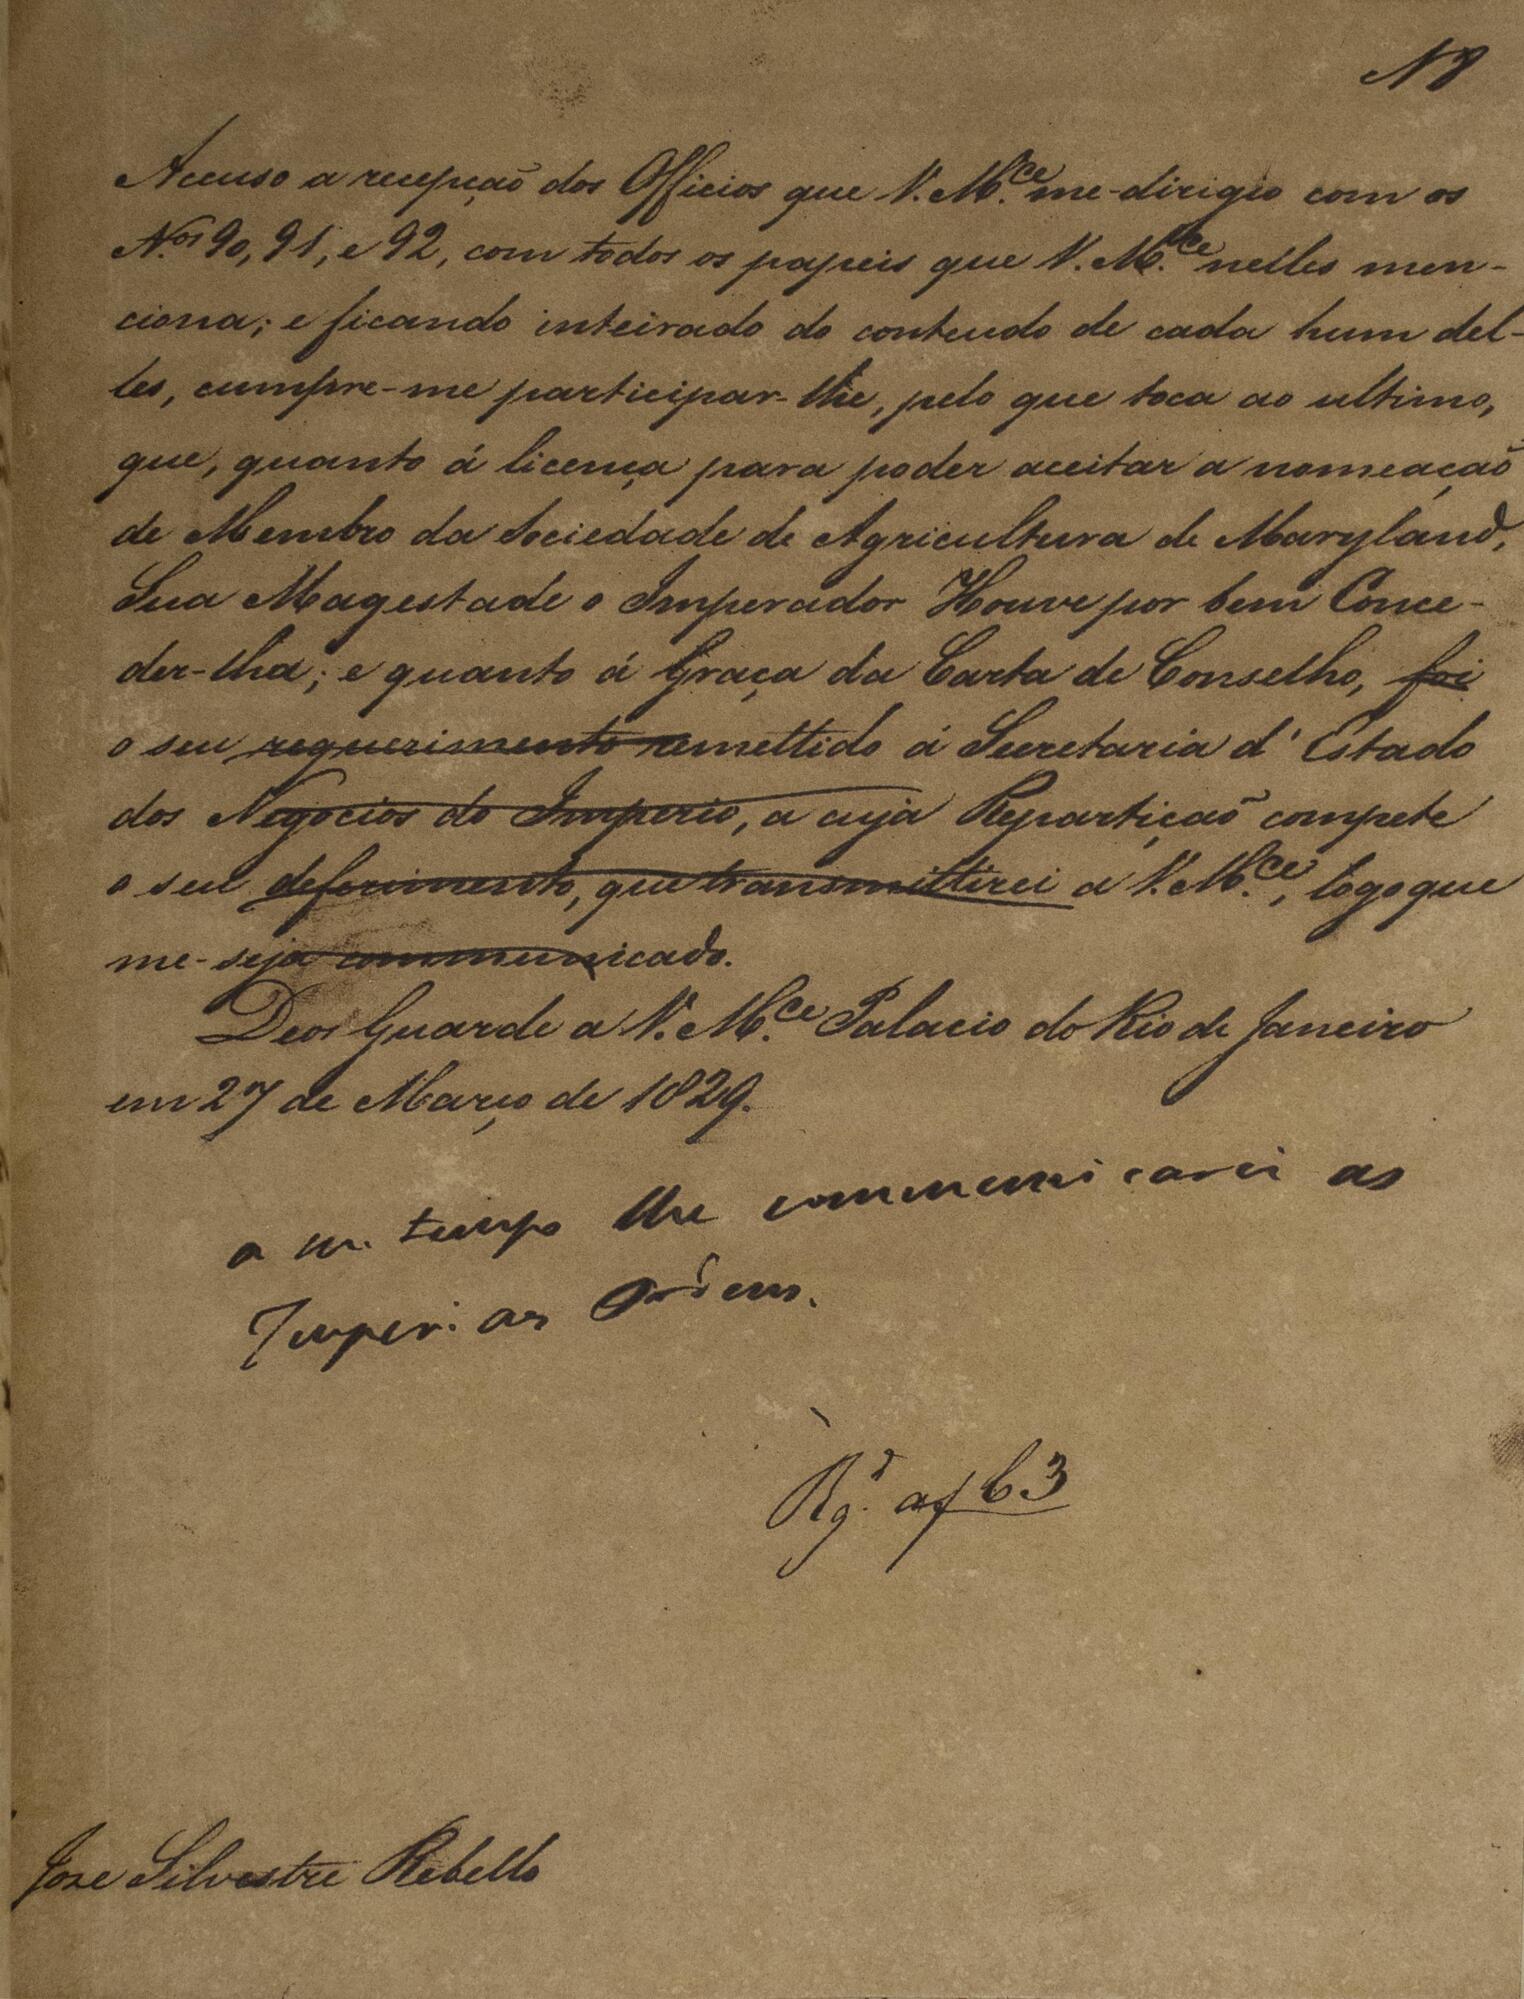 N 8
Accuso a recepção dos Officios que V. M.ce me-dirigio com os
N.os 90, 91, e 92, com todos os papeis que V. M.ce nelles men-
ciona; e ficando inteirado do conteudo de cada hum del-
les, cumpre-me participar-lhe, pelo que toca ao ultimo,
que, quanto á licença para poder aceitar a nomeação
de Membro da Sociedade de Agricultura de Maryland,
Sua Magestade o Imperador Houve por bem Conce-
der-lha; e quanto á Graça da Carta de Conselho, foi
o seu requerimento remettido á Secretaria d'Estado
dos Negocios do Imperio, a cuja Repartição compete
o seu deferimento, que transmittirei a V. M.ce, logo que
me-seja communicado.
Deos Guarde a V. M.ce Palacio do Rio de Janeiro
em 27 de Março de 1829.
a m. tempo lhe communicarei as
Imperiaes Ordens.
Rg.d af 63
Jose Silvestre Rebello